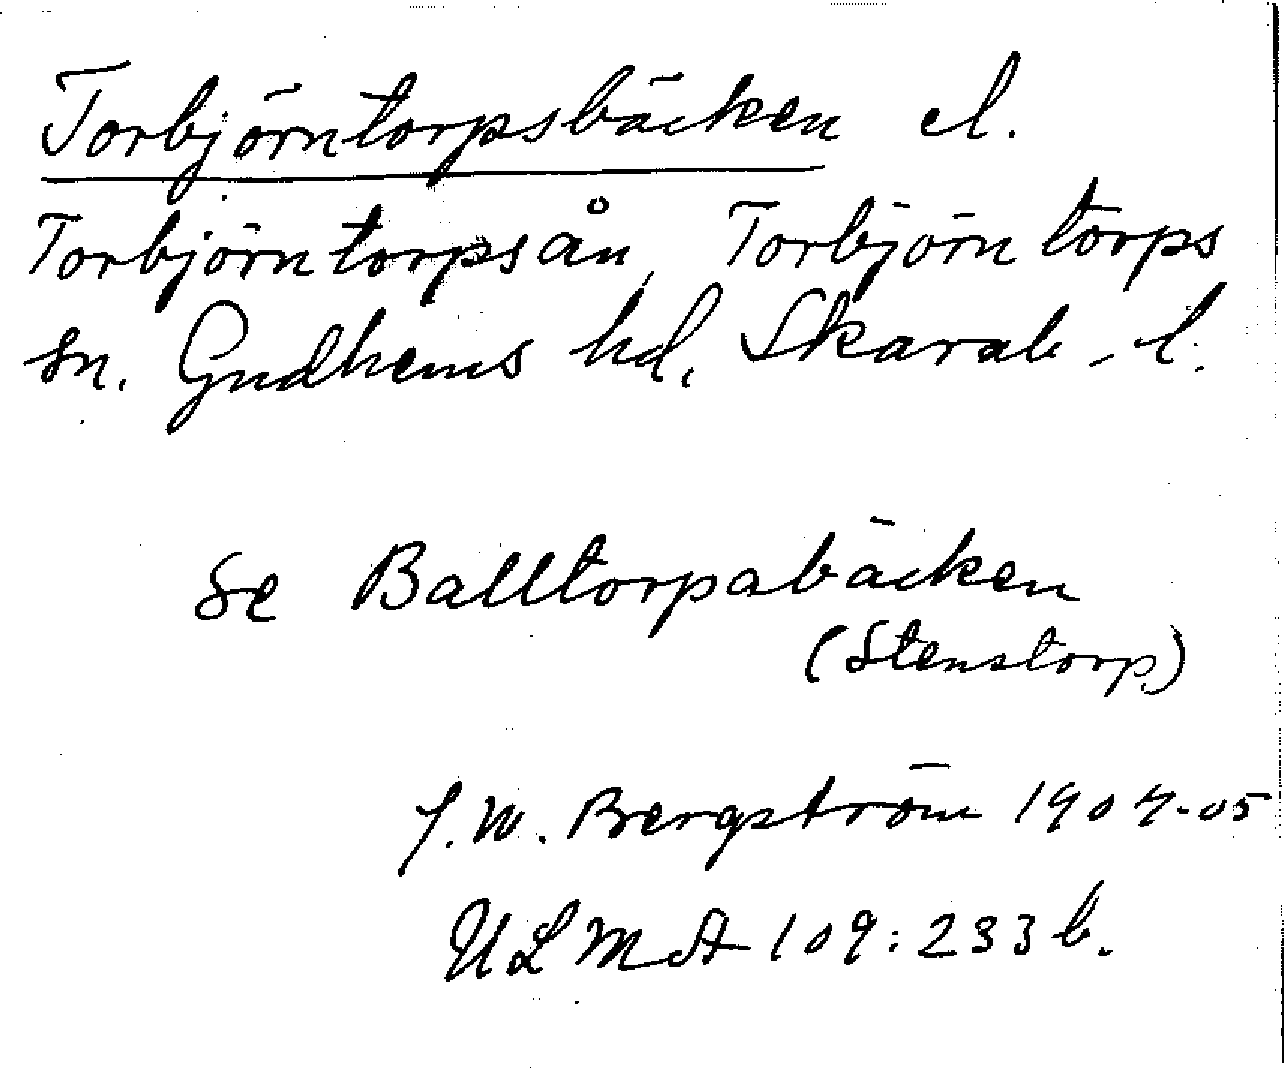 Torbjörntorpsbäcken el.
Torbjörntorpsån, Torbjörntorps
sn. Gudhems hd, Skarab. l.
Se Balltorpabäcken
(Stenstorp)
J. W. Bergström 1904-05
ULMA 109:233 b.